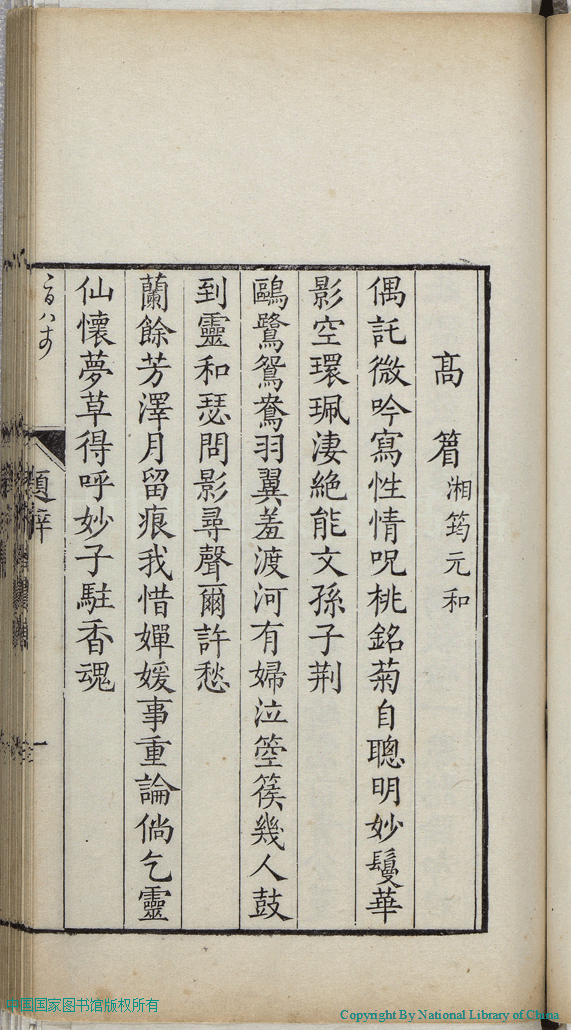 高篃湘筠元和
偶託微吟寫性情呪桃銘菊自聰明妙鬘華
影空環珮淒絶能文孫子荆
鷗鷺鴛鴦羽翼羞渡河有婦泣箜篌幾人鼓
到靈和瑟問影尋聲爾許愁
蘭餘芳澤月留痕我惜嬋媛事重論倘乞靈
仙懷夢草得呼妙子駐香魂
題辭
一
中国国家图书馆版权所有
Copyright By National Library of China